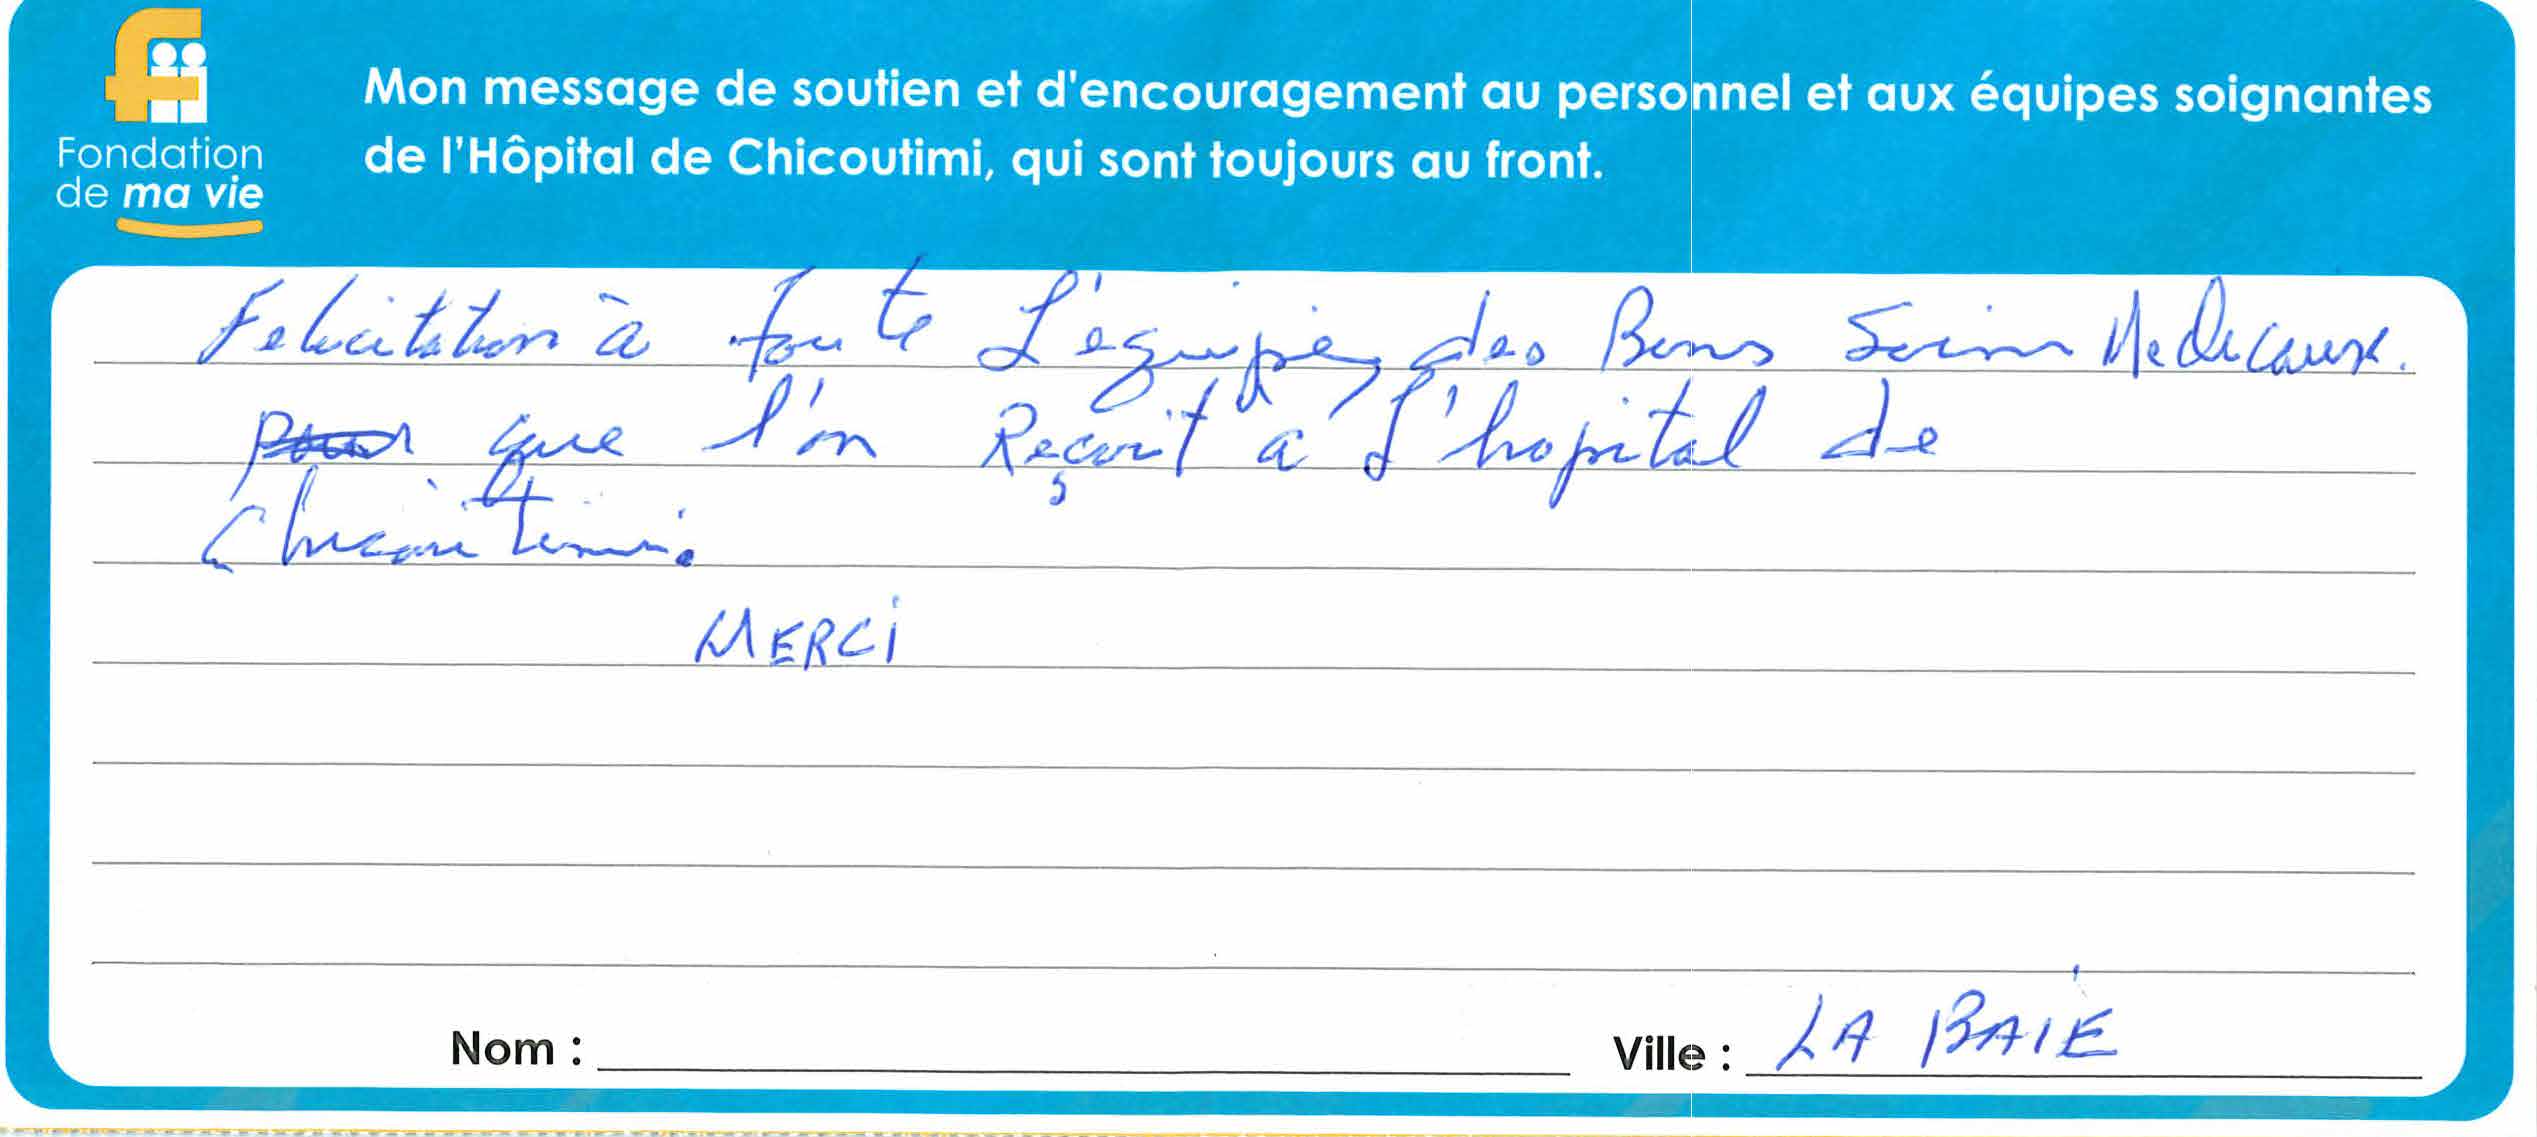 Fondation
de ma vie
Mon message de soutien et d'encouragement au personnel et aux équipes soignantes
de l'Hôpital de Chicoutimi, qui sont toujours au front.
Felicitation à toute L'équipe, des Bons Soins Medicaux.
pour que l'on Reçoit a L'hopital de
Chicoutimi.
MERCi
Nom :
Ville : LA BAIE